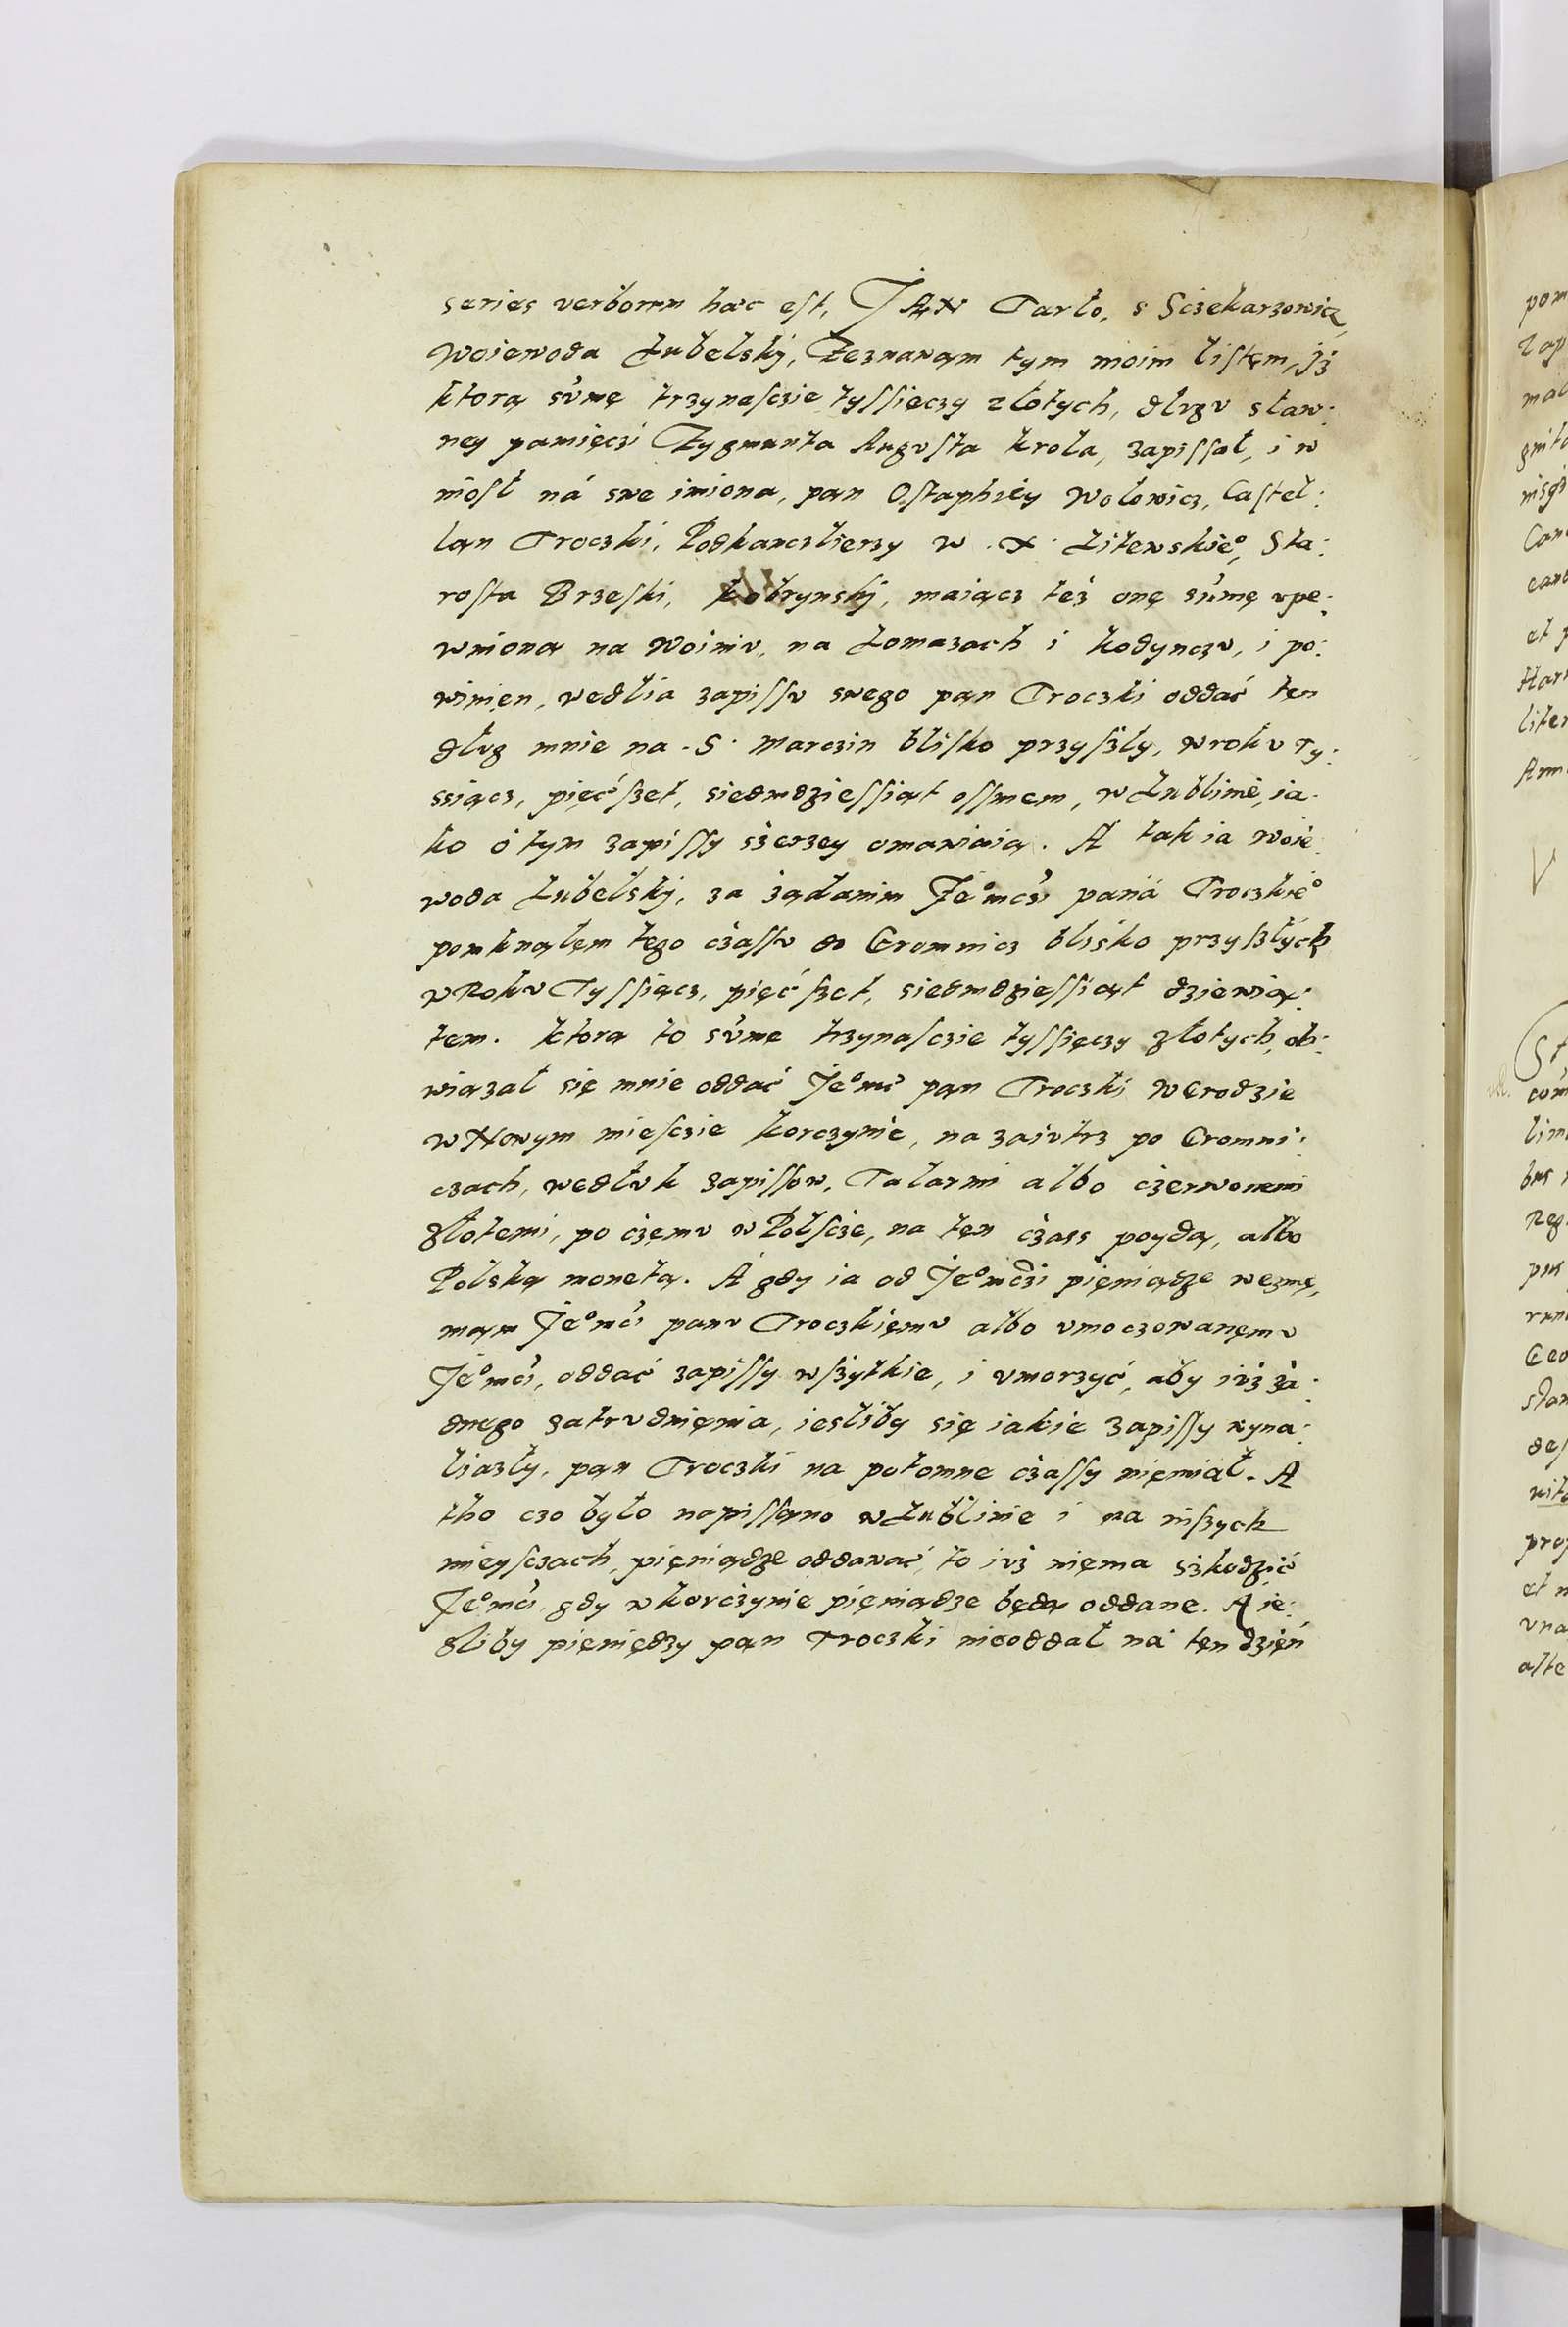 series verborum hæc est, JAN Tarło, s Sczekarzowicz,
Woiewoda Lubelskÿ, Zeznawąm tym moim listęm, Jż
ktorą sumę trzynasczie tyſſięczy złotych, dłvgv sław:
ney pamięczi Zygmunta Augvsta krola, zapiſſał, i w
niosł ná swe imiona, pąn Ostaphiey Wołowicz, Castel:
lan Troczki, Podkanczlierzy W. X. Litewskie°, Sta:
rosta Brzeski, kobrynskÿ, maiącz też onę sumę vpe:
wnioną na Woiniv, na Łomazach i kodynczv, i po:
winien, wedlia zapiſſv swego pąn Troczki oddać tęn
dłvg mnie na .S. Marczin blisko przyszły, w rokv Ty:
ssiącz, pięćſzet, siedmdzieſſiąt oſſmem, w Lublinie, ia:
ko o tym zapiſſy szerzey omawiaią. A tak ia Woie:
woda Lubelskÿ, za żądanim Je°mcżi paná Troczkie°
pomknąłęm tego cżaſſv do Gromnicz blisko przyszłych
w Rokv Tyſſiącz, pięćſzet, siedmdzieſſiąt dziewią:
tem. ktorą to sumę trzynasczie tyſſięczy złotych, ob:
wiązał się mnie oddać Je°mć pąn Troczki w Grodzie
w Nowym mieſczie korczynie, na zaivtrz po Gromni:
czach, wedłvk zapiſſow, Talarmi albo czerwonemi
złotemi, po cżęmv w Polscze, na tęn cżass poydą, albo
Polską monetą. A gdy ia od Je°mczi pięniądze wezmę,
mąm Je°mći panv Troczkięmv albo vmoczowanęmv
Je°mći, oddać zapiſſy wſzytkie, i vmorzyć, aby ivż żá:
dnego zatrvdnięnia, iesliby się iakie zapiſſy wyna:
liazły, pąn Troczki na potomne cżaſſy nięmiał. A
tho czo było napiſſąno w Lublinie i na inſzych
mieysczach, pięniądze oddawać, to ivż nięma szkodzić
Je°mći, gdy w korcżynie pięniądze będą oddane. A ie:
zliby pięniędzy pąn Troczki nieoddał ná tęn dzięń